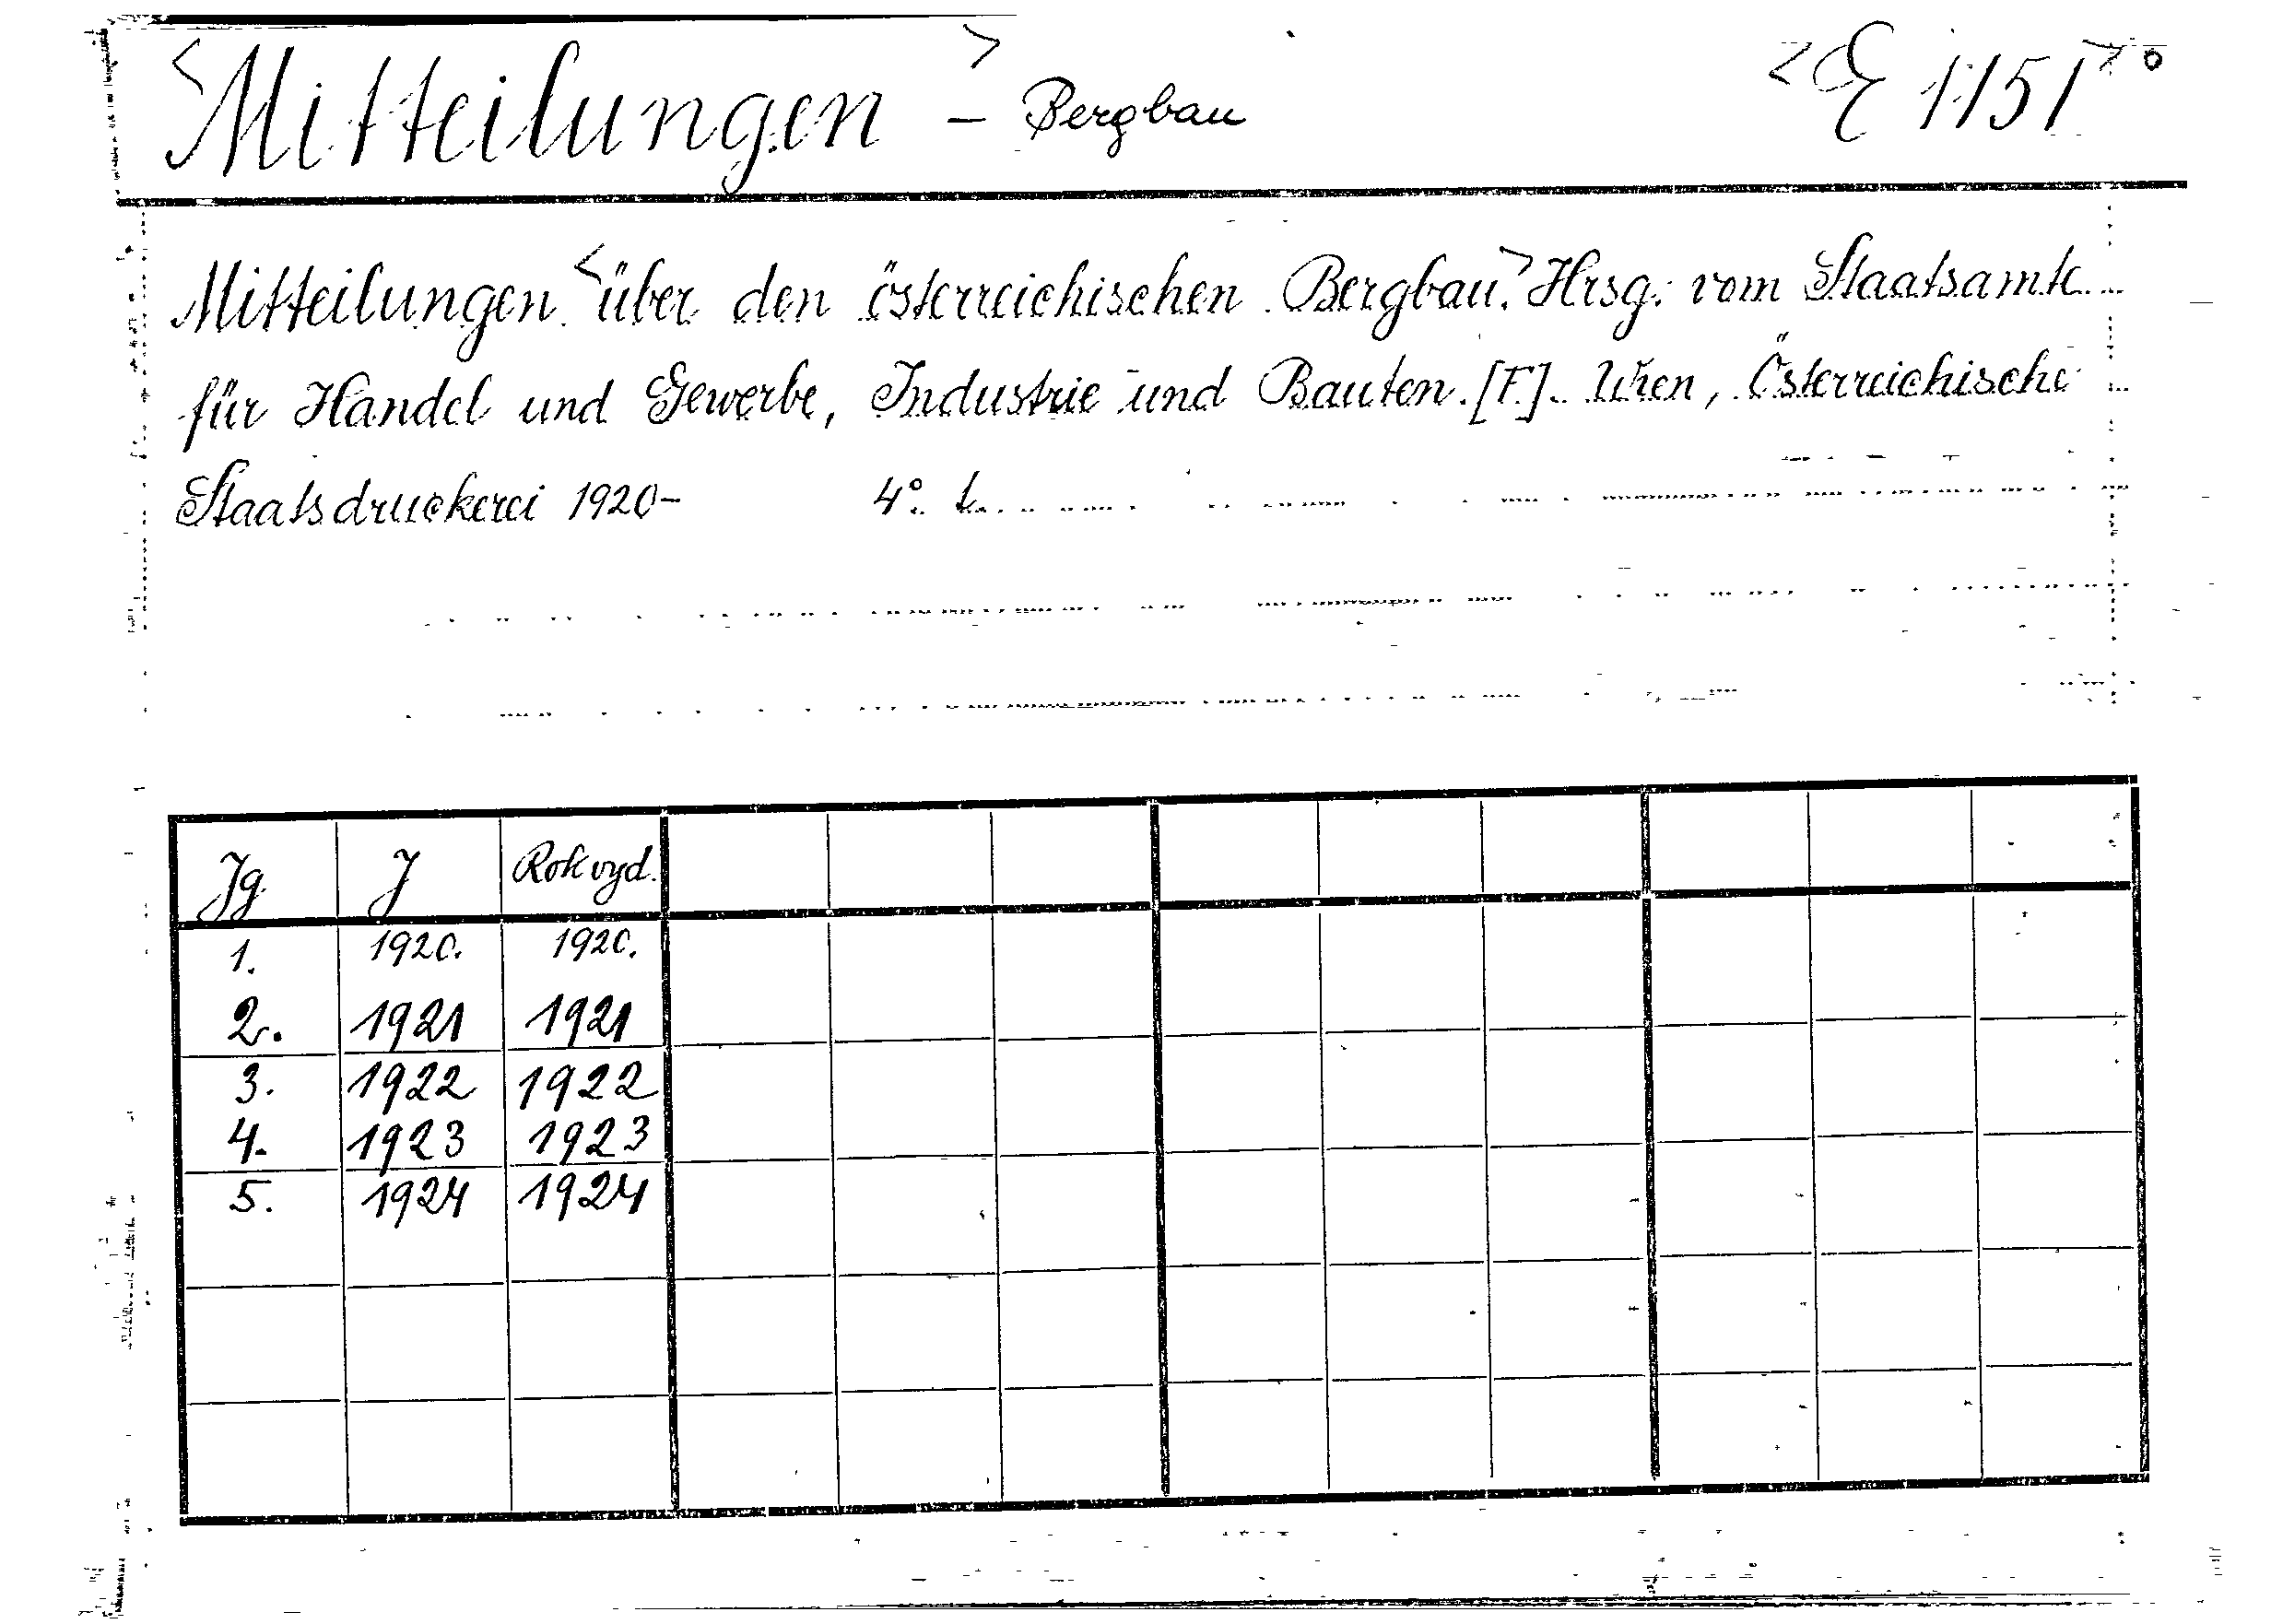 <Mitteilungen> - Bergbau <E 1151>°
Mitteilungen <über den österreichischen Bergbau.> Hrsg. vom Staatsamte
für Handel und Gewerbe, Industrie und Bauten. [F.]. Wien, Österreichische
Staatsdruckerei 1920- 4°.
Jg J Rok vyd.
1. 1920. 1920.
2. 1921 1921
3. 1922 1922
4. 1923 1923
5. 1924 1924